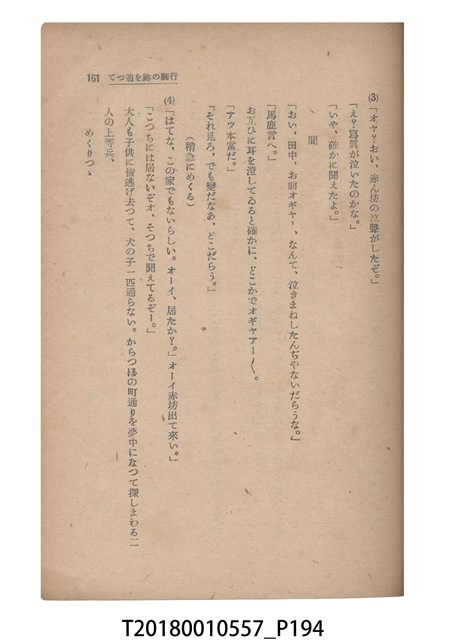 161 てつ追を跡の胸行
(3)「オヤ？おい、赤ん坊の泣聲がしたぞ。」
「え？寫眞が泣いたのかな。」
「いや、確かに聞えたよ。」
間
「おい、田中、お前オギャー、なんて、泣きまねしたんぢやないだらうな。」
「馬鹿言へ。」
お互ひに耳を澄してゐると確かに、どこかでオギャアー〳〵。
「アッ本當だ。」
「それ見ろ、でも變だなあ、どこだらう。」
(稍急にめくる)
(4)「はてな、この家でもないらしい。オーイ、居たか？。」オーイ赤坊出て來い。」
「こつちには居ないぞオ、そつちで聞えてるぞー。」
大人も子供に皆逃げ去つて、犬の子一匹通らない。からつぽの町通りを夢中になつて探しまわる二
人の上等兵、
めくりつゝ
T20180010557_P194